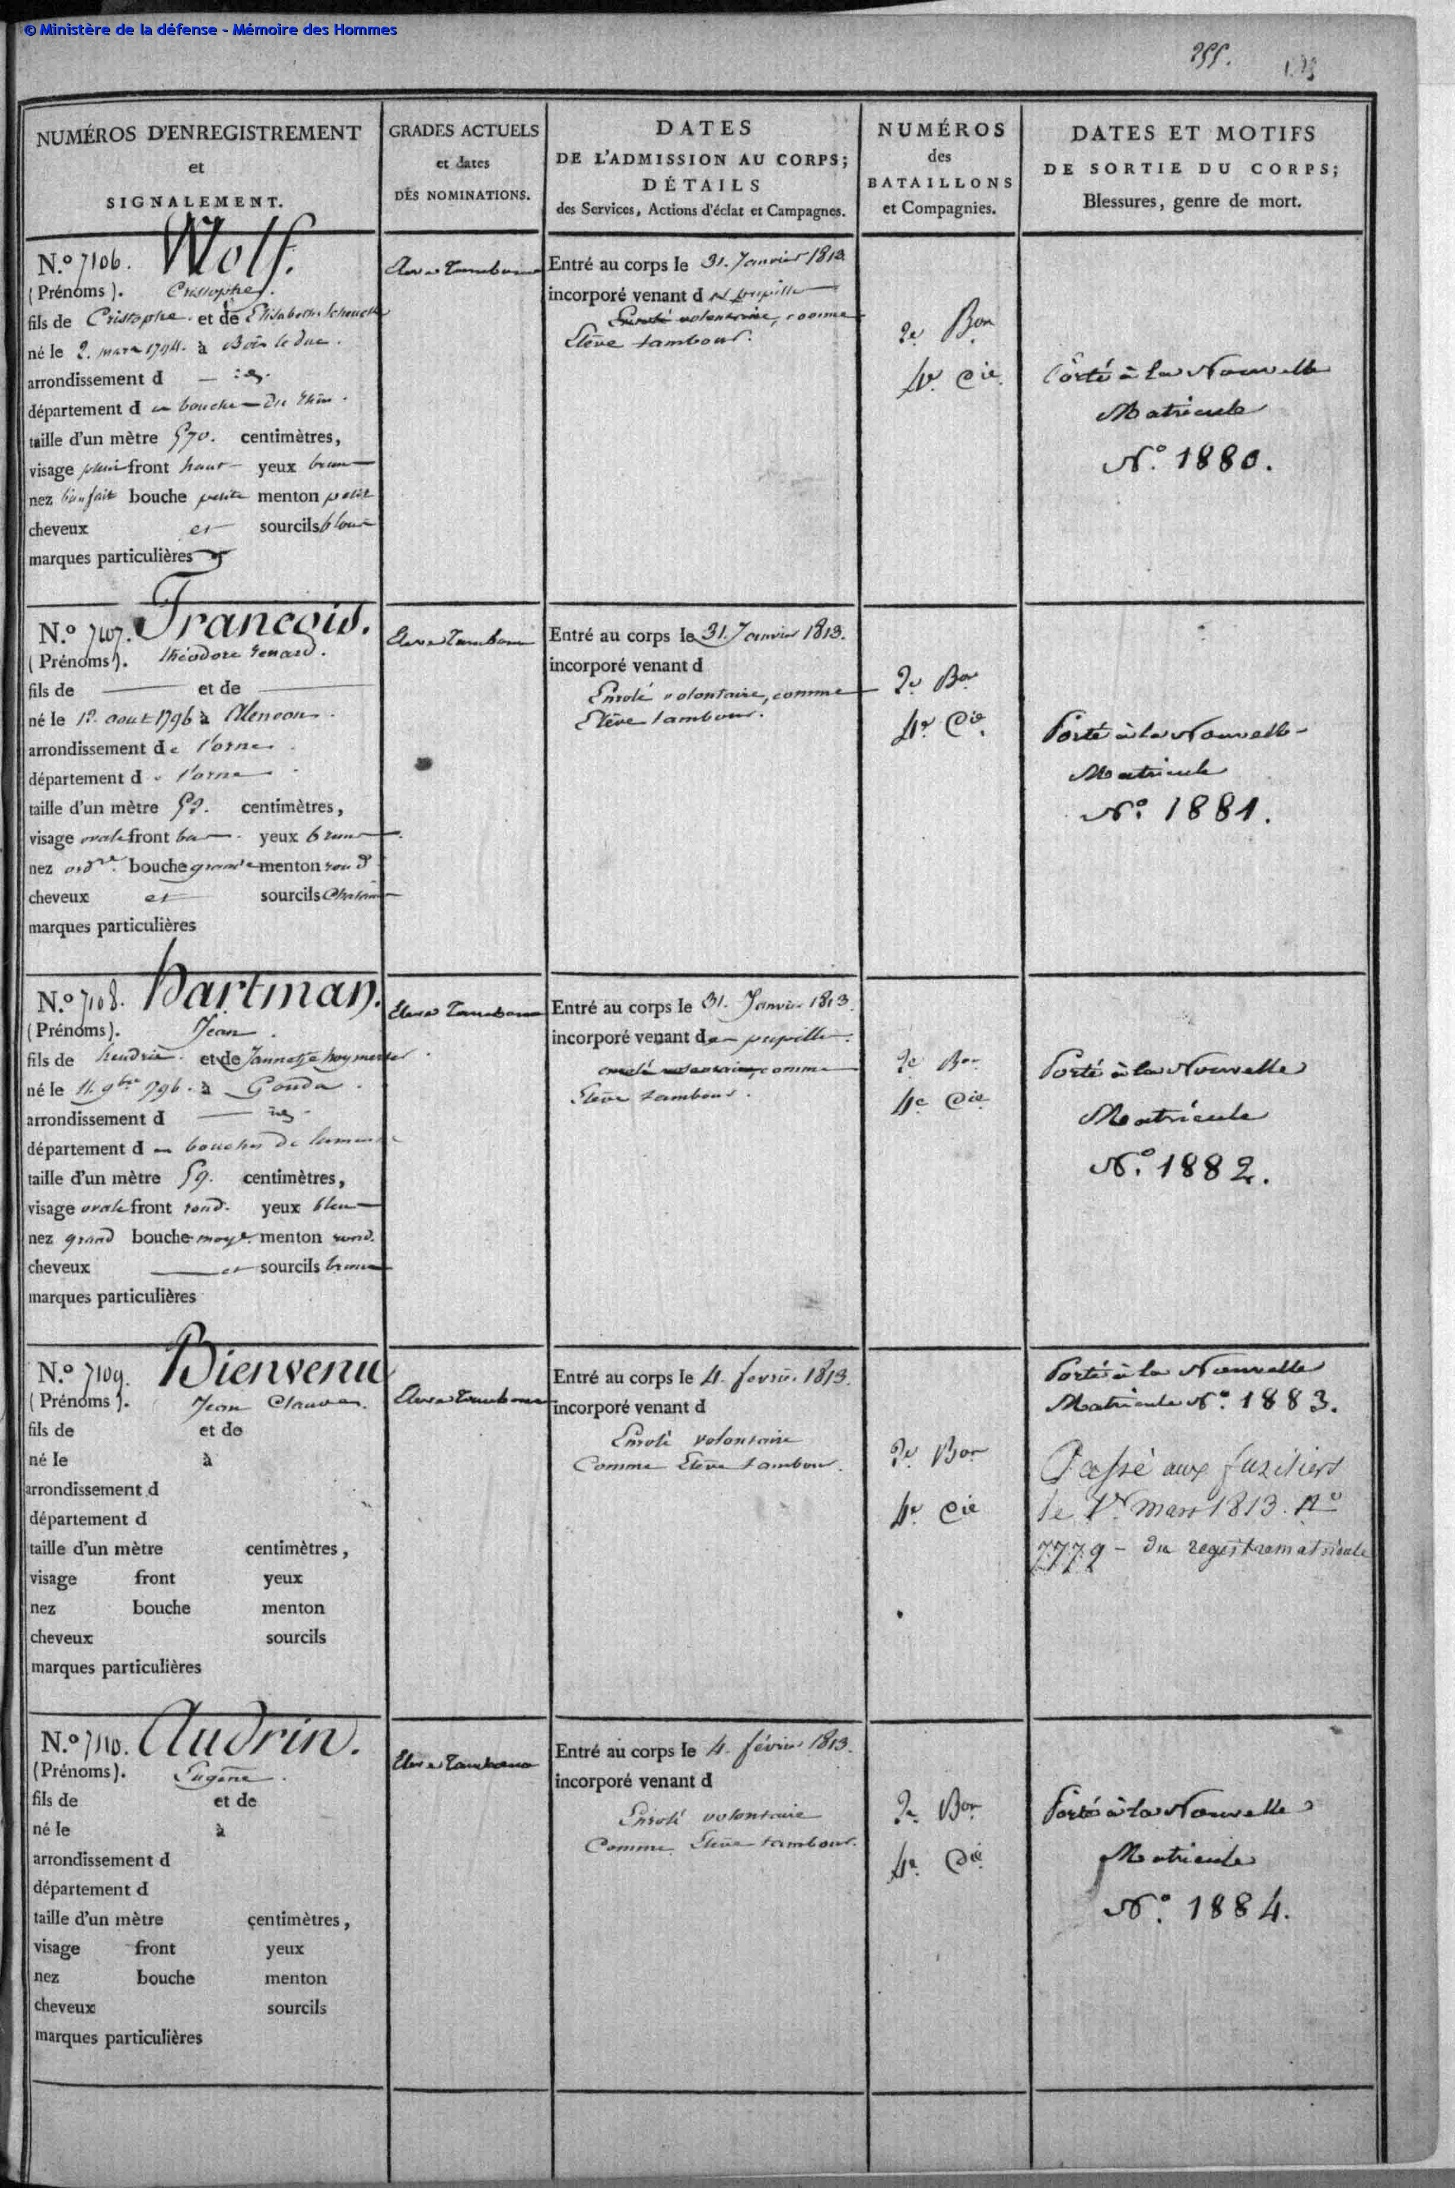 © Ministère de la défense - Mémoire des Hommes
255.
NUMÉROS D'ENREGISTREMENT
et
SIGNALEMENT.
GRADES ACTUELS
et dates
DES NOMINATIONS.
DATES
DE L'ADMISSION AU CORPS;
DÉTAILS
des Services, Actions d'éclat et Campagnes.
NUMÉROS
des
BATAILLONS
et Compagnies.
DATES ET MOTIFS
DE SORTIE DU CORPS;
Blessures, genre de mort.
N.º 7106. Wolf.
(Prénoms). Cristophe.
fils de Cristophe. et de Elisabeth
né le 2. mars 1794. à Bois le duc.
arrondissement d
département d es bouches du Rhin.
taille d'un mètre 570. centimètres,
visage plein front haut yeux brun
nez bienfait bouche petite menton petit
cheveux et sourcils blond
marques particulières
Eleve Tambour
Entré au corps le 31. Janvier 1813
incorporé venant d es pupilles
Enrolé volontaire, comme
Elève tambour.
2e Bon
4e Cie.
Porté à la Nouvelle
Matricule
N.º 1880.
N.º 7107. Francois.
(Prénoms). théodore renard.
fils de et de
né le 12. aout 1796 à Alencon.
arrondissement de l'orne.
département de l'orne
taille d'un mètre 52. centimètres,
visage ovale front bas yeux brun
nez ordre bouche grande menton rond
cheveux et sourcils Chatain
marques particulières
Eleve Tambour
Entré au corps le 31. Janvier 1813.
incorporé venant d
Enrolé volontaire, comme
Elève tambour.
2e Bon
4e Cie.
Porté à la Nouvelle
Matricule
N.º 1881.
N.º 7108. Hartman.
(Prénoms). Jean.
fils de hendric. et de Jannetje
né le 11. 9bre 1796. à Gouda.
arrondissement d
département des bouches de la meuse
taille d'un mètre 59. centimètres,
visage ovale front rond. yeux bleu
nez grand bouche moye. menton rond.
cheveux et sourcils brun
marques particulières
Eleve Tambour
Entré au corps le 31. Janvier 1813
incorporé venant des pupilles.
enrolé volontaire, comme
Elève tambour.
2e Bon
4e Cie
Porté à la Nouvelle
Matricule
N.º 1882.
N.º 7109. Bienvenu
(Prénoms). Jean
fils de et de
né le à
arrondissement d
département d
taille d'un mètre centimètres,
visage front yeux
nez bouche menton
cheveux sourcils
marques particulières
Eleve Tambour
Entré au corps le 4. fevrier 1813.
incorporé venant d
Enrolé volontaire
Comme Elève tambour.
2e Bon
4e Cie
Porté à la Nouvelle
Matricule N.º 1883.
Passé aux fuziliers
le 1er mars 1813. No
7779 - du registre matricule
N.º 7110. Audrin.
(Prénoms). Eugène.
fils de et de
né le à
arrondissement d
département d
taille d'un mètre centimètres,
visage front yeux
nez bouche menton
cheveux sourcils
marques particulières
Eleve Tambour
Entré au corps le 4. février 1813.
incorporé venant d
Enrolé volontaire
Comme Elève tambour.
2e Bon
4e Cie
Porté à la Nouvelle
Matricule
N.º 1884.